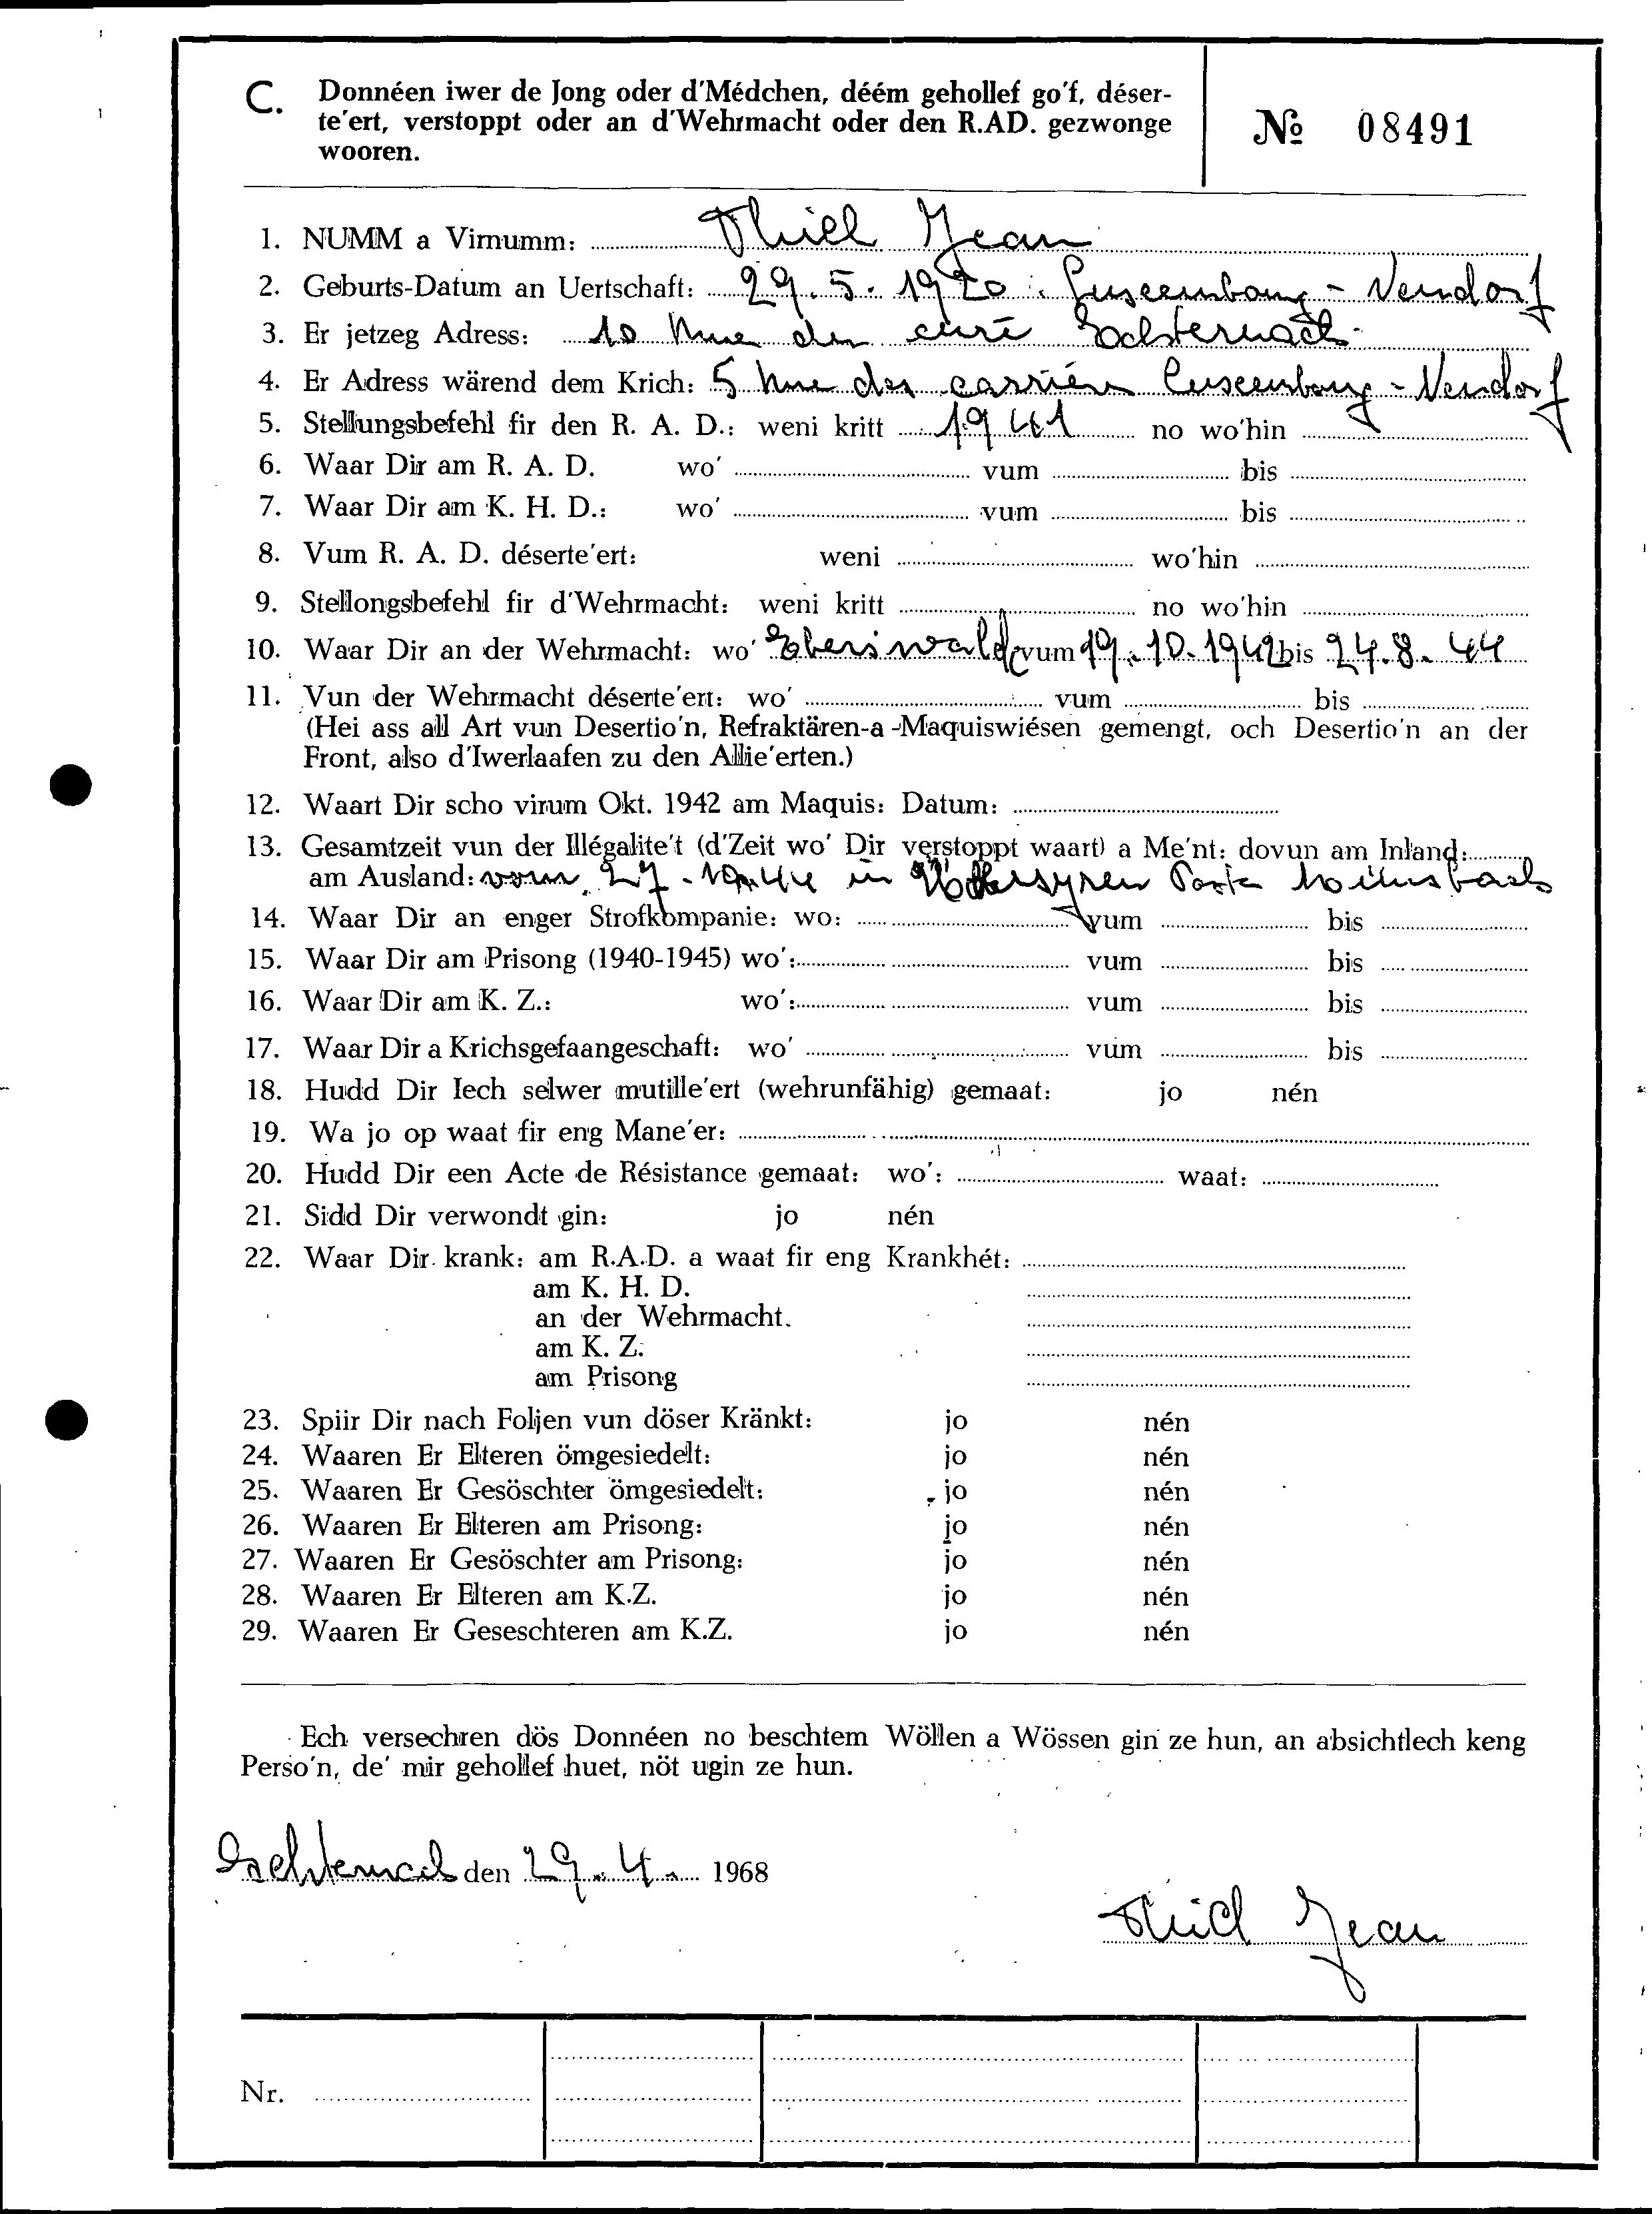 C. Donnéen iwer de Jong oder d'Médchen, déém gehollef go'f, déser-
te'ert, verstoppt oder an d'Wehrmacht oder den R.AD. gezwonge
wooren.
№ 08491
1. NUMM a Virnumm: Thiel Jean
2. Geburts-Datum an Uertschaft: 29.5.1920. Luxembourg - Neudorf
3. Er jetzeg Adress: 10 Rue du curé Echternach
4. Er Adress wärend dem Krich: 5 Rue des carrière Luxembourg - Neudorf
5. Stellungsbefehl fir den R. A. D.: weni kritt 1941 no wo'hin
6. Waar Dir am R. A. D. wo' vum bis
7. Waar Dir am K. H. D.: wo' vum bis
8. Vum R. A. D. déserte'ert: weni wo'hin
9. Stellongsbefehl fir d'Wehrmacht: weni kritt no wo'hin
10. Waar Dir an der Wehrmacht: wo' Eberswalde vum 19.10.1942 bis 24.8.44
11. Vun der Wehrmacht déserte'ert: wo' vum bis
(Hei ass all Art vun Desertio'n, Refraktären-a -Maquiswiésen gemengt, och Desertio'n an der
Front, also d'Iwerlaafen zu den Allie'erten.)
12. Waart Dir scho virum Okt. 1942 am Maquis: Datum:
13. Gesamtzeit vun der Illégalite't (d'Zeit wo' Dir verstoppt waart) a Me'nt: dovun am Inland:
am Ausland: vom 27 in
14. Waar Dir an enger Strofkompanie: wo: vum bis
15. Waar Dir am Prisong (1940-1945) wo': vum bis
16. Waar Dir am K. Z.: wo': vum bis
17. Waar Dir a Krichsgefaangeschaft: wo' vum bis
18. Hudd Dir Iech selwer mutille'ert (wehrunfähig) gemaat: jo nén
19. Wa jo op waat fir eng Mane'er:
20. Hudd Dir een Acte de Résistance gemaat: wo': waat:
21. Sidd Dir verwondt gin: jo nén
22. Waar Dir krank: am R.A.D. a waat fir eng Krankhét:
am K. H. D.
an der Wehrmacht.
am K. Z.
am Prisong
23. Spiir Dir nach Foljen vun döser Kränkt: jo nén
24. Waaren Er Elteren ömgesiedelt: jo nén
25. Waaren Er Gesöschter ömgesiedelt: jo nén
26. Waaren Er Elteren am Prisong: jo nén
27. Waaren Er Gesöschter am Prisong: jo nén
28. Waaren Er Elteren am K.Z. jo nén
29. Waaren Er Geseschteren am K.Z. jo nén
Ech versechren dös Donnéen no beschtem Wöllen a Wössen gin ze hun, an absichtlech keng
Perso'n, de' mir gehollef huet, nöt ugin ze hun.
Echternach den 29.4. 1968
Thiel Jean
Nr.